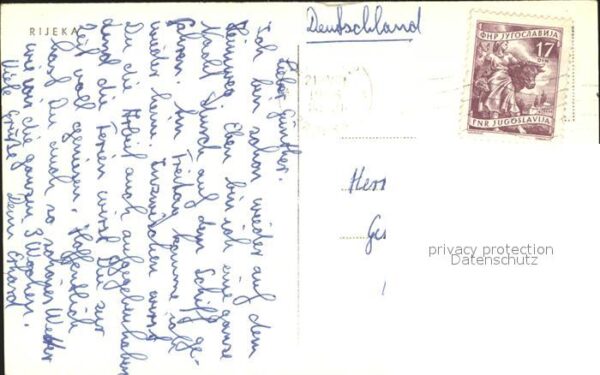 RIJEKA
Lieber Günther.
Ich bin schon wieder auf dem
Heimweg. Eben bin ich eine ganze
Nacht durch auf dem Schiff ge-
fahren. Am Freitag komme ich
wieder heim. Inzwischen wirst
Du die Arbeit auch aufgegeben haben
und die Ferien wirst Du zur
Zeit voll genießen. Hoffentlich
hast Du auch so schönes Wetter
wie wir die ganzen 3 Wochen.
Viele Grüße Dein Erhard
Deutschland
ФНР ЈУГОСЛАВИЈА
17
FNR JUGOSLAVIJA
Herr
Ge
privacy protection
Datenschutz